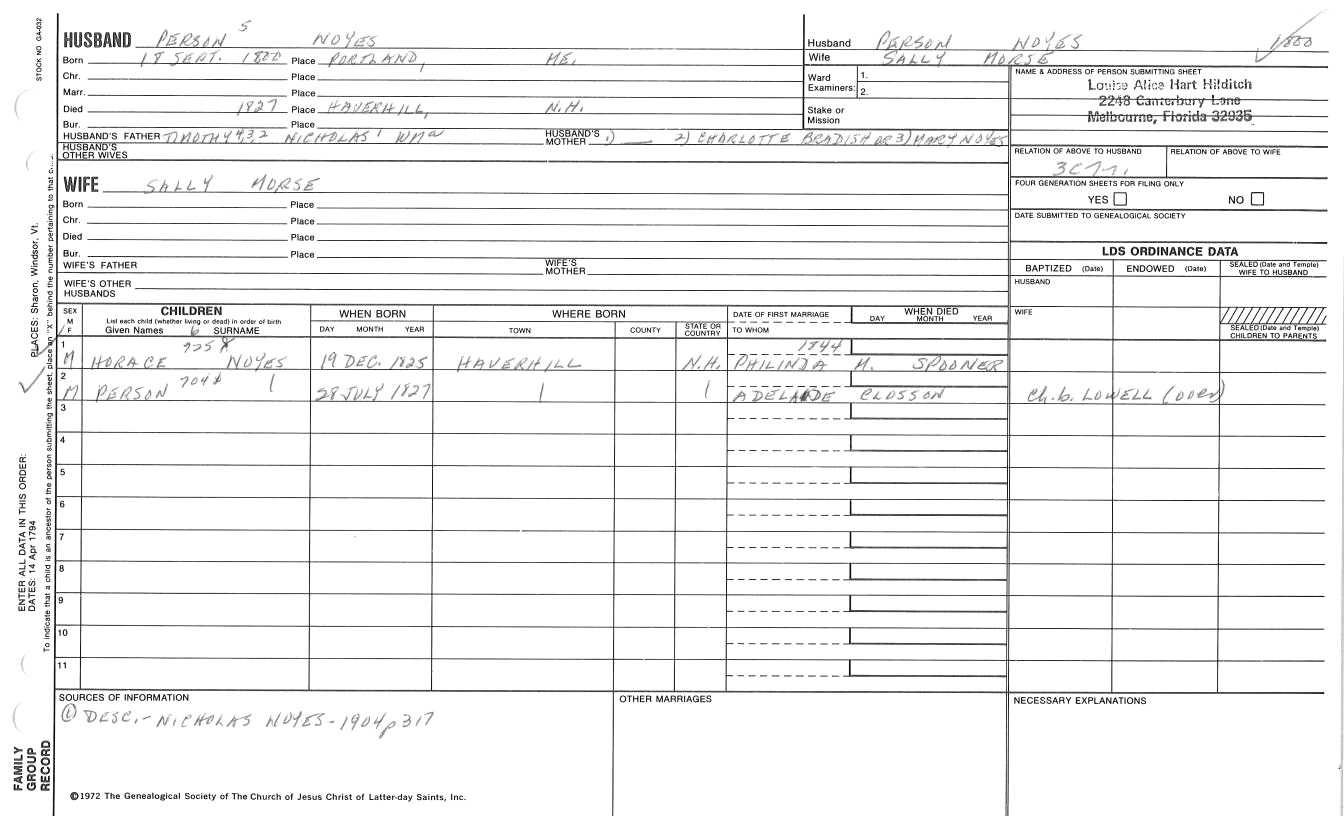 STOCK NO GA-032
HUSBAND PERSON 5 NOYES
Born 18 SEPT. 1800 Place PORTLAND, ME.
Chr. Place
Marr. Place
Died 1827 Place HAVERHILL, N.H.
Bur. Place
HUSBAND'S FATHER TIMOTHY 4,3,2 NICHOLAS 1 WMa HUSBAND'S MOTHER 1) 2) CHARLOTTE BRADISH OR 3) MARY NOYES
HUSBAND'S OTHER WIVES
Husband PERSON NOYES 1800
Wife SALLY MORSE
Ward Examiners: 1.
2.
Stake or Mission
NAME & ADDRESS OF PERSON SUBMITTING SHEET
Louise Alice Hart Hilditch
2248 Canterbury Lane
Melbourne, Florida 32935
RELATION OF ABOVE TO HUSBAND RELATION OF ABOVE TO WIFE
FOUR GENERATION SHEETS FOR FILING ONLY
YES NO
DATE SUBMITTED TO GENEALOGICAL SOCIETY
WIFE SALLY MORSE
Born Place
Chr. Place
Died Place
Bur. Place
WIFE'S FATHER WIFE'S MOTHER
WIFE'S OTHER HUSBANDS
LDS ORDINANCE DATA
BAPTIZED (Date) ENDOWED (Date) SEALED (Date and Temple) WIFE TO HUSBAND
HUSBAND
WIFE
SEALED (Date and Temple) CHILDREN TO PARENTS
SEX M F
CHILDREN
List each child (whether living or dead) in order of birth
Given Names 6 SURNAME
WHEN BORN
DAY MONTH YEAR
WHERE BORN
TOWN COUNTY STATE OR COUNTRY
DATE OF FIRST MARRIAGE
TO WHOM
WHEN DIED
DAY MONTH YEAR
1 925 1844
M HORACE NOYES 19 DEC. 1825 HAVERHILL N.H. PHILINDA M. SPOONER
2 704
M PERSON 28 JULY 1827 ADELAIDE CLOSSON Ch. b. LOWELL
3
4
5
6
7
8
9
10
11
SOURCES OF INFORMATION
① DESC. - NICHOLAS NOYES - 1904 p 317
OTHER MARRIAGES
NECESSARY EXPLANATIONS
©1972 The Genealogical Society of The Church of Jesus Christ of Latter-day Saints, Inc.
ENTER ALL DATA IN THIS ORDER:
DATES: 14 Apr 1794
PLACES: Sharon, Windsor, Vt.
To indicate that a child is an ancestor of the person submitting the sheet, place an "X" behind the number pertaining to that
FAMILY GROUP RECORD